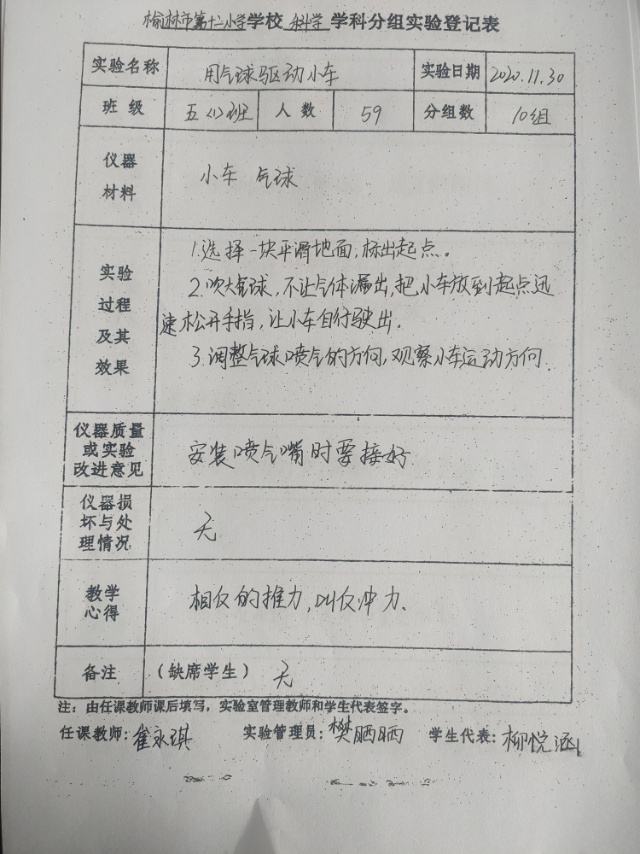 榆林市第十二小学学校 科学 学科分组实验登记表
实验名称 用气球驱动小车 实验日期 2020.11.30
班级 五(1)班 人数 59 分组数 10组
仪器
材料
小车 气球
实验
过程
及其
效果
1.选择一块平滑地面,标出起点。
2.吹大气球,不让气体漏出,把小车放到起点迅
速松开手指,让小车自行驶出.
3.调整气球喷气的方向,观察小车运动方向.
仪器质量
或实验
改进意见
安装喷气嘴时要接好
仪器损
坏与处
理情况
无
教学
心得
相反的推力,叫反冲力.
备注 (缺席学生) 无
注:由任课教师课后填写,实验室管理教师和学生代表签字。
任课教师:崔永琪 实验管理员:樊晒晒 学生代表:柳悦涵